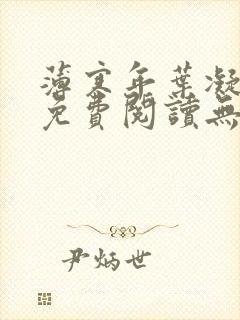 薄寒年葉凝
免費閱讀無
尹炳世